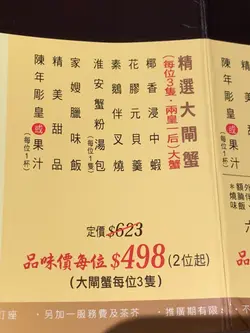 精選大閘蟹
(每位3隻·兩皇一后)大蟹
椰香浸中蝦
花膠元貝羹
素鵝伴叉燒
淮安蟹粉湯包
(每位1隻)
家嫂臘味飯
精美甜品
陳年彫皇或果汁
(每位1杯)
陳年彫皇或果汁
(每位1杯)
定價$623
品味價每位$498(2位起)
(大閘蟹每位3隻)
*額外
燒腩伴
例送
六
訂座 · 另加一服務費及茶芥 · 推廣期有限